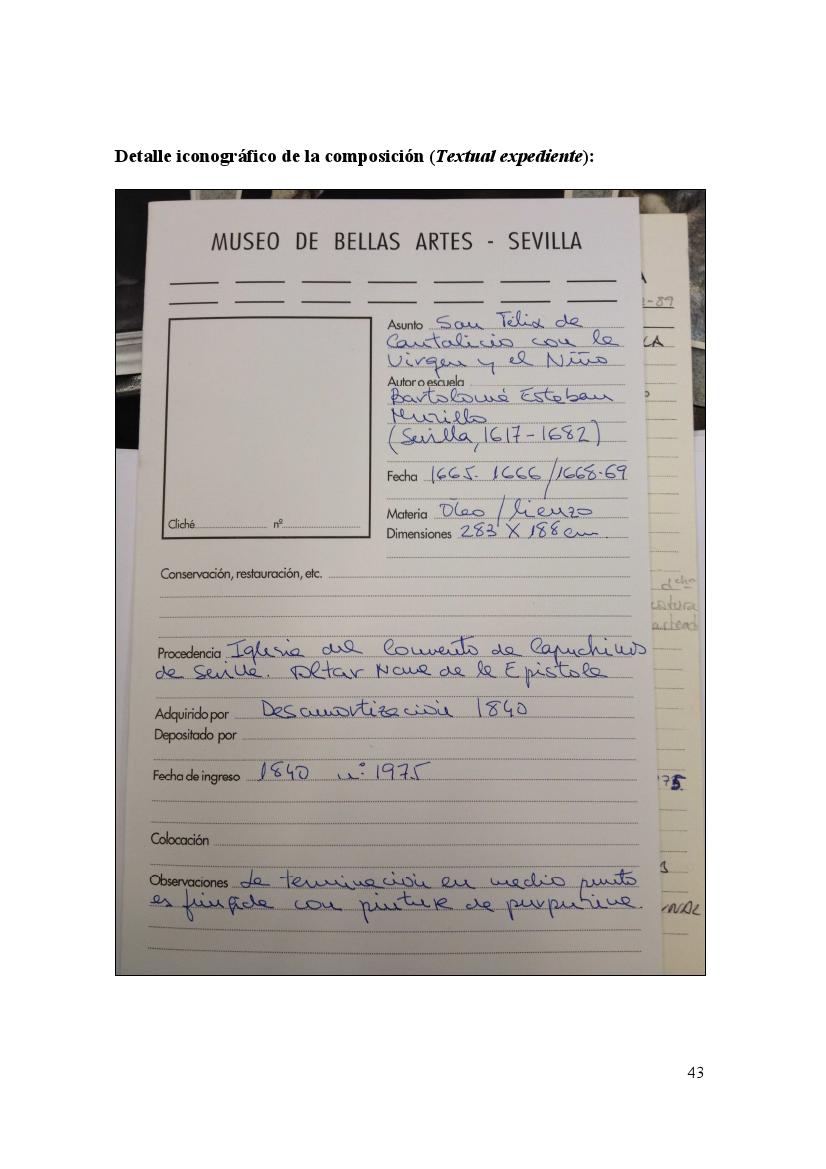 Detalle iconográfico de la composición (Textual expediente):
MUSEO DE BELLAS ARTES - SEVILLA
Asunto San Félix de
Cantalicio con la
Virgen y el Niño
Autor o escuela
Bartolomé Esteban
Murillo
(Sevilla, 1617-1682)
Fecha 1665-1666/1668-69
Materia Óleo/lienzo
Dimensiones 283 X 188 cm.
Cliché nº
Conservación, restauración, etc.
Procedencia Iglesia del Convento de Capuchinos
de Sevilla. Altar Nave de la Epístola
Adquirido por Desamortización 1840
Depositado por
Fecha de ingreso 1840 nº 1975
Colocación
Observaciones La terminación en medio punto
es fingida con pintura de purpurina.
43